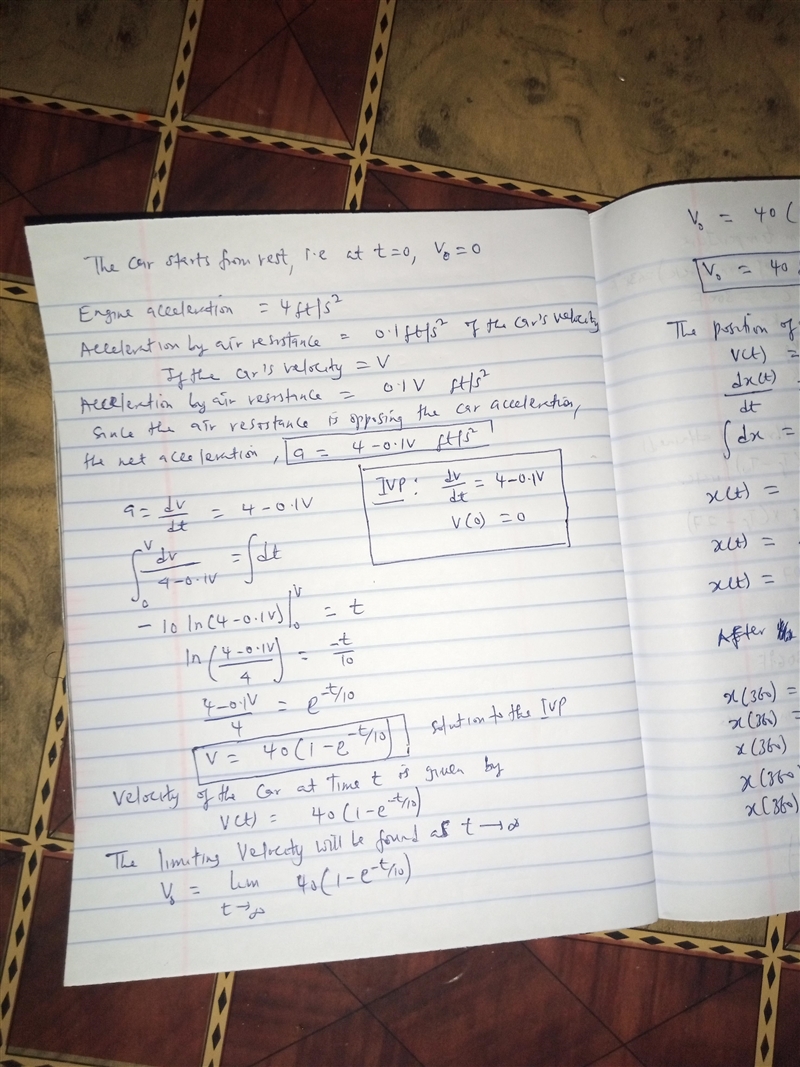 The car starts from rest, i.e at t=0, V₀=0
Engine acceleration = 4 ft/s²
Acceleration by air resistance = 0.1ft/s² of the car's velocity
If the car's velocity = V
Acceleration by air resistance = 0.1V ft/s²
Since the air resistance is opposing the car acceleration,
the net acceleration, a = 4 - 0.1V ft/s²
a = dv/dt = 4 - 0.1V
∫₀^V dv/(4-0.1V) = ∫dt
- 10 ln(4-0.1V)|₀^V = t
ln((4-0.1V)/4) = -t/10
(4-0.1V)/4 = e^(-t/10)
V = 40(1-e^(-t/10)) solution to the IVP
Velocity of the car at time t is given by
V(t) = 40(1-e^(-t/10))
The limiting velocity will be found as t→∞
V₀ = lim t→∞ 40(1-e^(-t/10))
IVP: dv/dt = 4-0.1V
V(0) = 0
V₀ = 40(
V₀ = 40
The position of
V(t) =
dx(t)/dt
∫dx =
x(t) =
x(t) =
x(t) =
After
x(360) =
x(360) =
x(360)
x(360)
x(360)